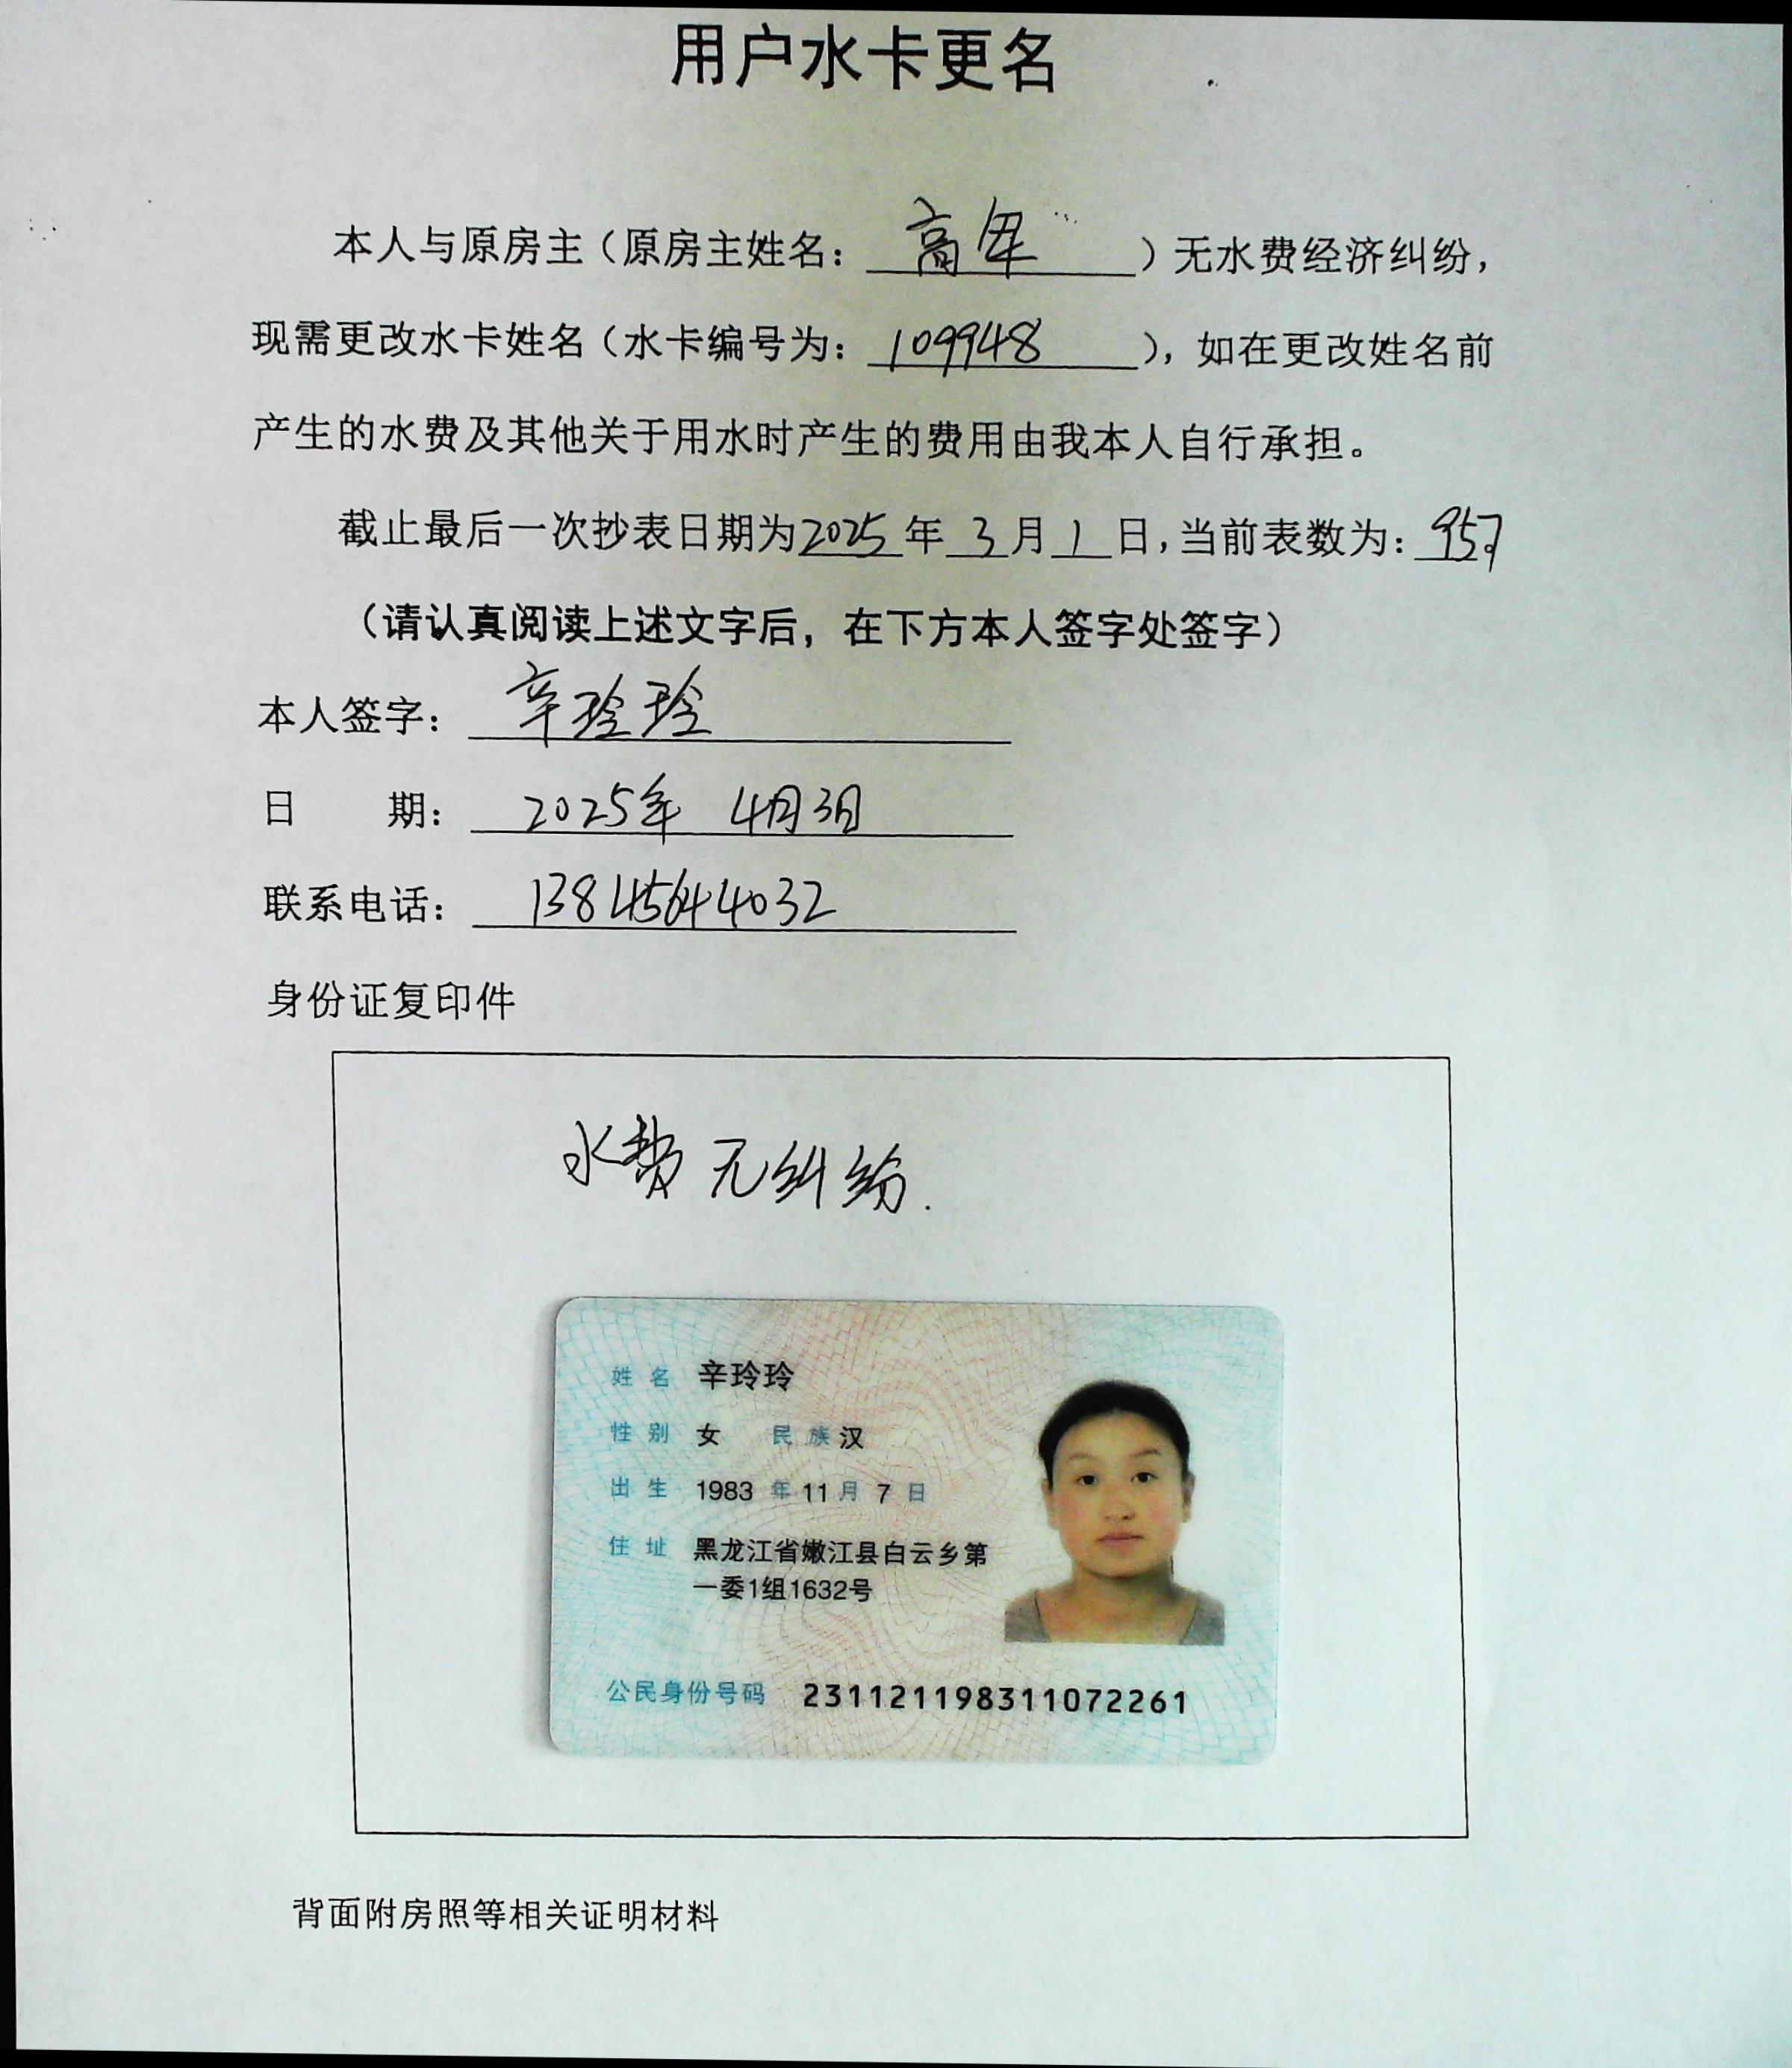 用户水卡更名
本人与原房主（原房主姓名：高军）无水费经济纠纷，
现需更改水卡姓名（水卡编号为：109948），如在更改姓名前
产生的水费及其他关于用水时产生的费用由我本人自行承担。
截止最后一次抄表日期为2025年3月1日，当前表数为：957
（请认真阅读上述文字后，在下方本人签字处签字）
本人签字：辛玲玲
日 期：2025年 4月3日
联系电话：13845644032
身份证复印件
水费无纠纷.
姓名 辛玲玲
性别 女 民族 汉
出生 1983 年 11 月 7 日
住址 黑龙江省嫩江县白云乡第
一委1组1632号
公民身份号码 231121198311072261
背面附房照等相关证明材料